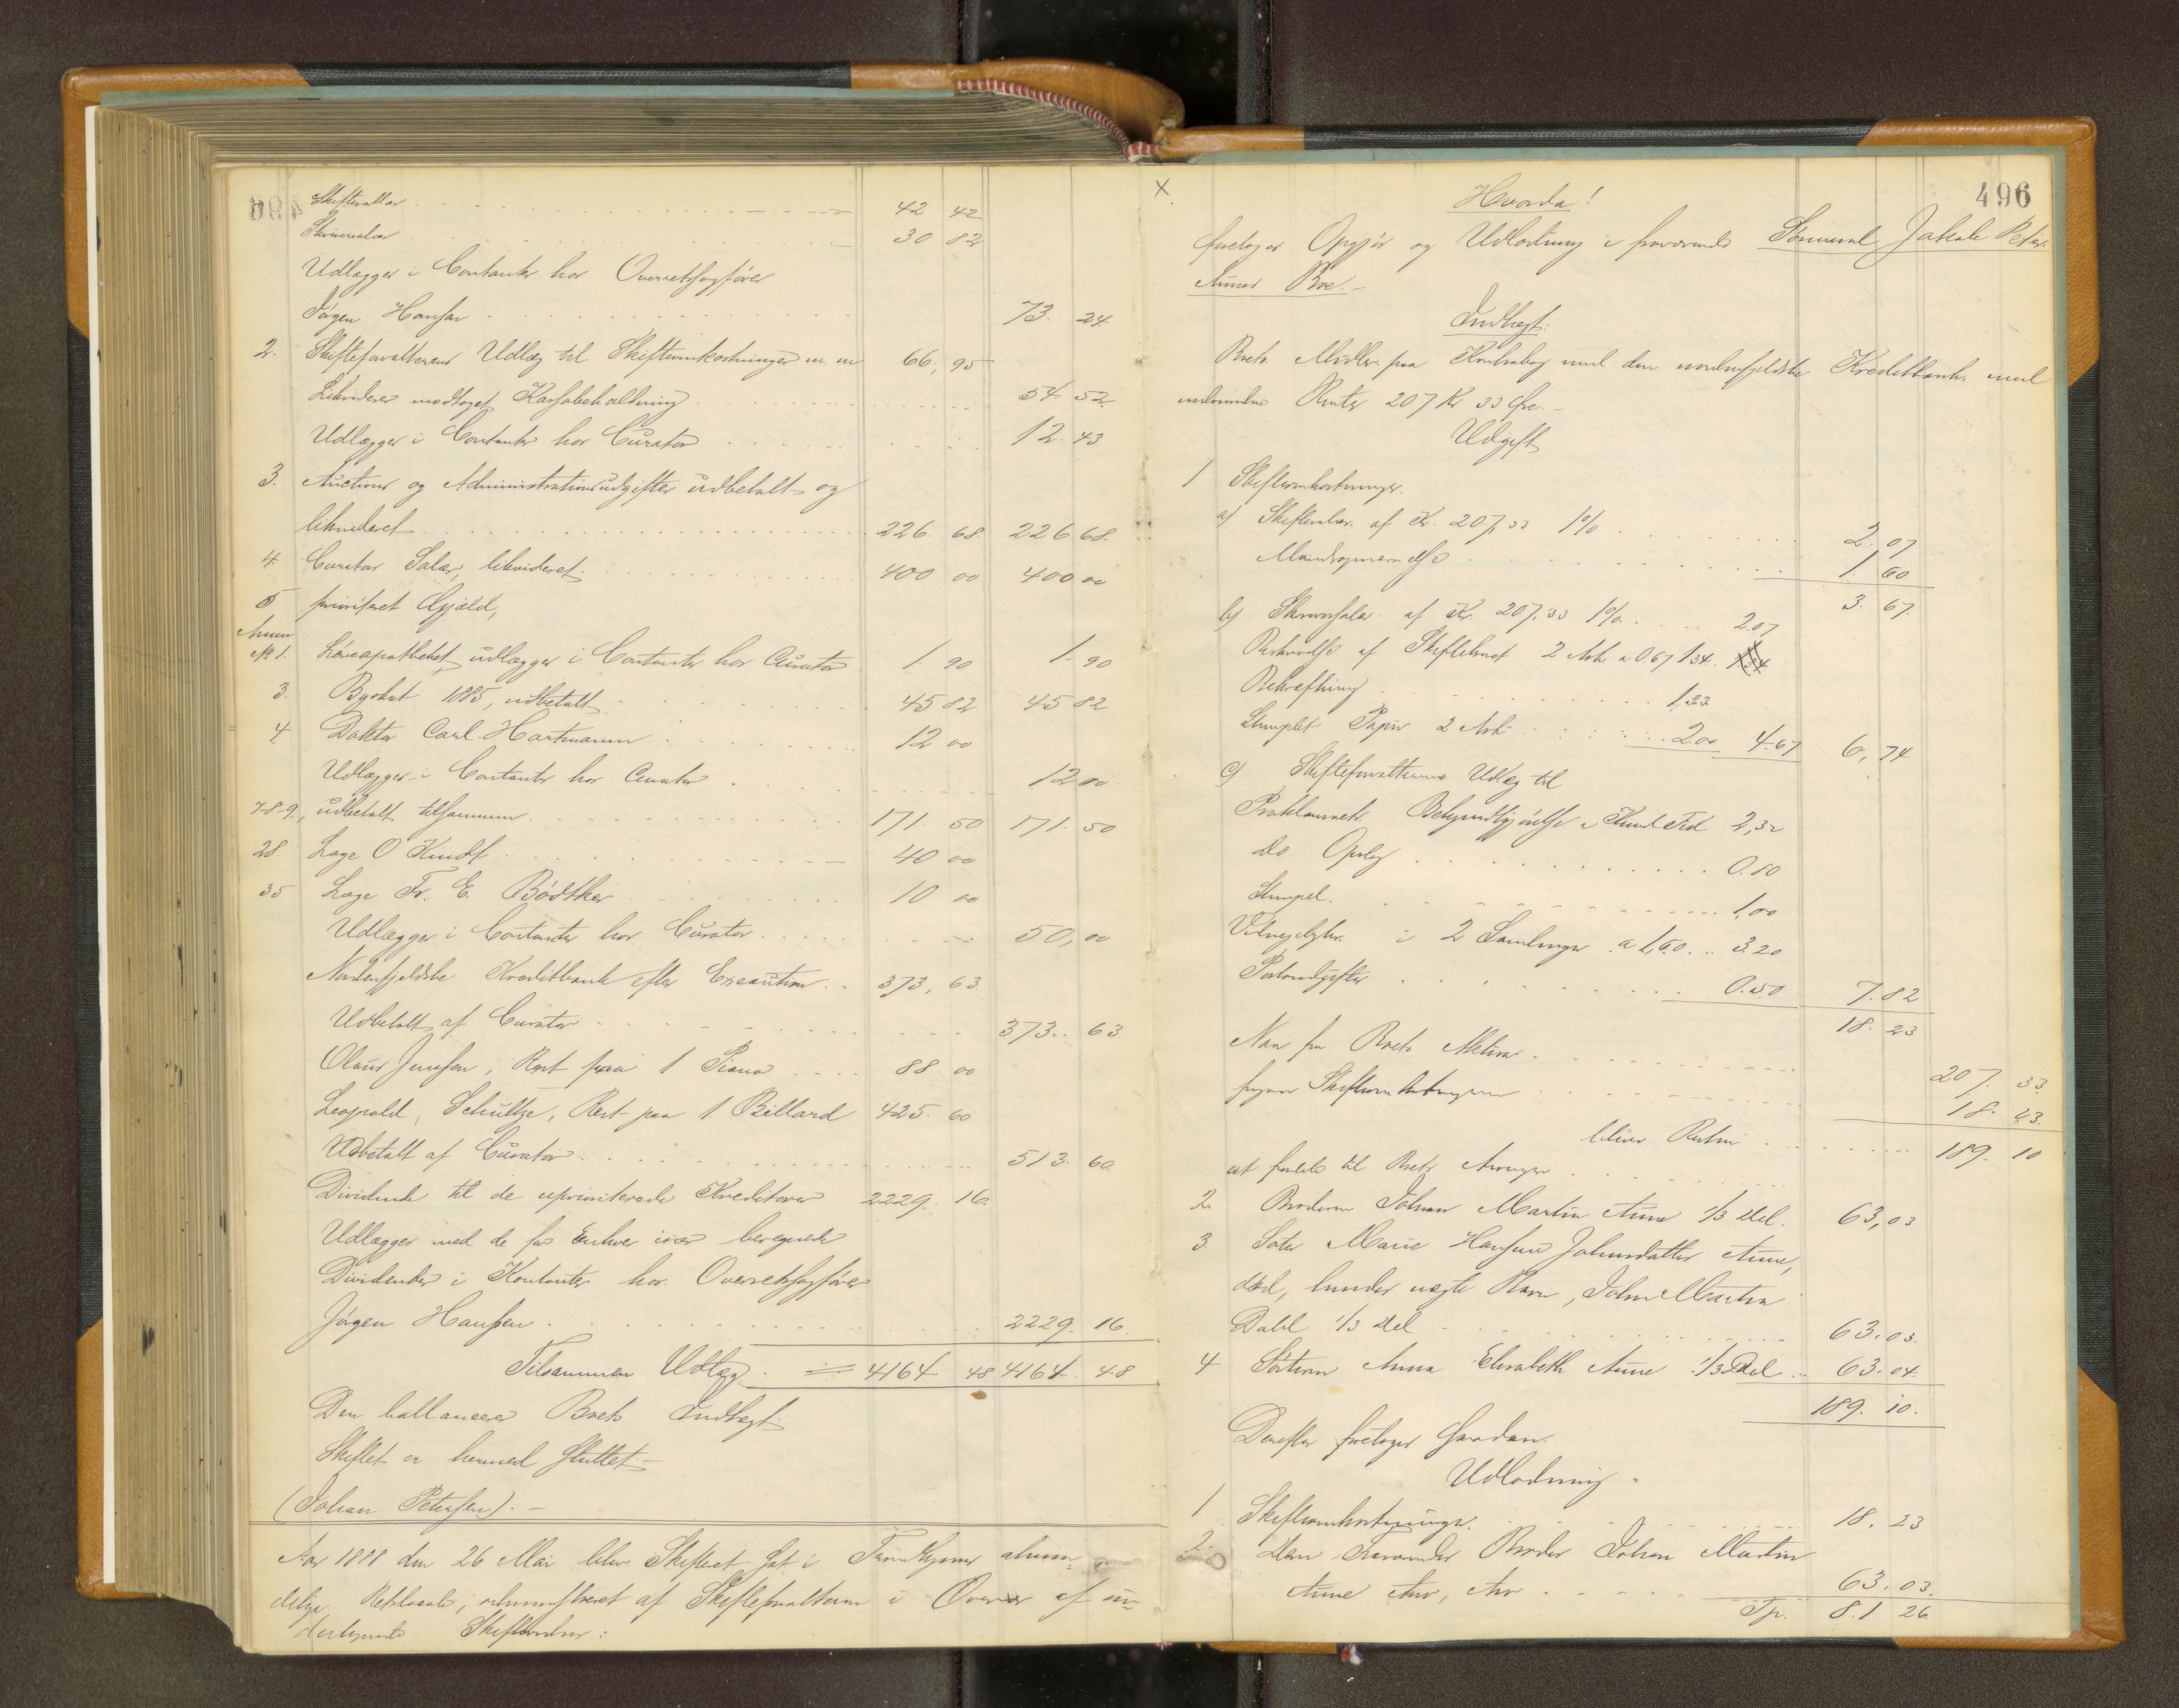 Skiftesallar 42 42
Skriversalar 30 82
Udlægges i Contanter hos Overretssagfører
Jørgen Hansen 73. 24.
2. Skifteforvalterens Udlæg til Skifteomkostninger m. m 66, 95
Likvideres modtaget Kassabeholdning 54. 52.
Udlægges i Contanter hos Curator 12. 43
3. Auctions og Administrationsudgifter udbetalt og
likvideret 226. 68 226 68.
4. Curators Salær, likvideret 400 00 400 00
5 prioriteret Gjæld,
Anm
No 1. Løveapotheket, udlægges i Contanter hos Curator 1. 90 1. 90
3. Byskat 1885, udbetalt 45 82 45 82
4. Doktor Carl Hartmann 12 00
Udlægges i Contanter hos Curator 12 00
7-8-9, udbetalt tilsammen 171. 50 171. 50
28. Læge O Kindt 40 00
35 Læge Fr. E. Bødtker 10 00
Udlægges i Contanter hos Curator 50, 00
Nordenfjeldske Kreditbank efter Execution 373, 63
Udbetalt af Curator 373. 63
Olaus Jenssen, Rest paa 1 Piano 88. 00
Leopold Schultze, Rest paa 1 Billard 425. 60
Udbetalt af Curator 513. 60.
Dividende til de uprioriterede Kreditorer 2229. 16.
Udlægges med de for Enhver især beregnede
Dividender i Kontanter hos Overretssagfører
Jørgen Hanssen 2229. 16.
Tilsammen Udlæg 4164 48 4164. 48
Den ballancerer Boets Indtægt
Skiftet er hermed sluttet.-
(Johan Petersen). -
Aar 1888 den 26 Mai blev Skifteret sat i almin-
delige Retslocale, administreret af Skifteforvalteren i Overvær af un-
dertegnede
X
496
Hvorda!
foretoges Opgjør og Udlodning i fraværende Sømand Jakob Peter
Aunes Bo.-
Indtægt:
Boets Midler paa Kontrabog med den nordenfjeldske Kreditbank med
Renter 207 Kr 33 Øre.-
Udgift
1 Skifteomkostninger.
a) Skiftesalær af Kr. 207,33 1% 2. 07
1. 60
3. 67.
b) Skriversalær af Kr. 207,33 1% 2.07
Beskrivelse af Skiftebrevet 2 Ark a 0.67 1.34.
Bekræftning 1,33
Stemplet Papir 2 Ark 2.00 4.67 6, 74
c) Skifteforvalterens Udlæg til
Proklamaets Bekjendtgjørelse i 2,32
do Opslag 0.80
Stempel. 1,00
i 2 Samlinger a 1,60 3.20
Portoudgifter 0.50 7.82
18. 23
Naar fra Boets Aktiva 207. 33.
Skifteomkostningerne 18. 23.
bliver Resten 189. 10
at fordele til Boets Arvinger
2. Broderen Johan Martin Aune 1/3 Del. 63,03
3. Søster Marie Johnsdatter Aune,
død, hendes ægte Barn, Johan Martin
Dahl 1/3 Del 63.03.
4 Søsteren Anna Elisabeth Aune 1/3 Del 63.04.
189. 10.
Derefter foretoges saadan
Udlodning.
1 Skifteomkostninger. 18. 23
2. Den Broder Johan Martin
Aune Arv, 63. 03.
Tp. 81 26